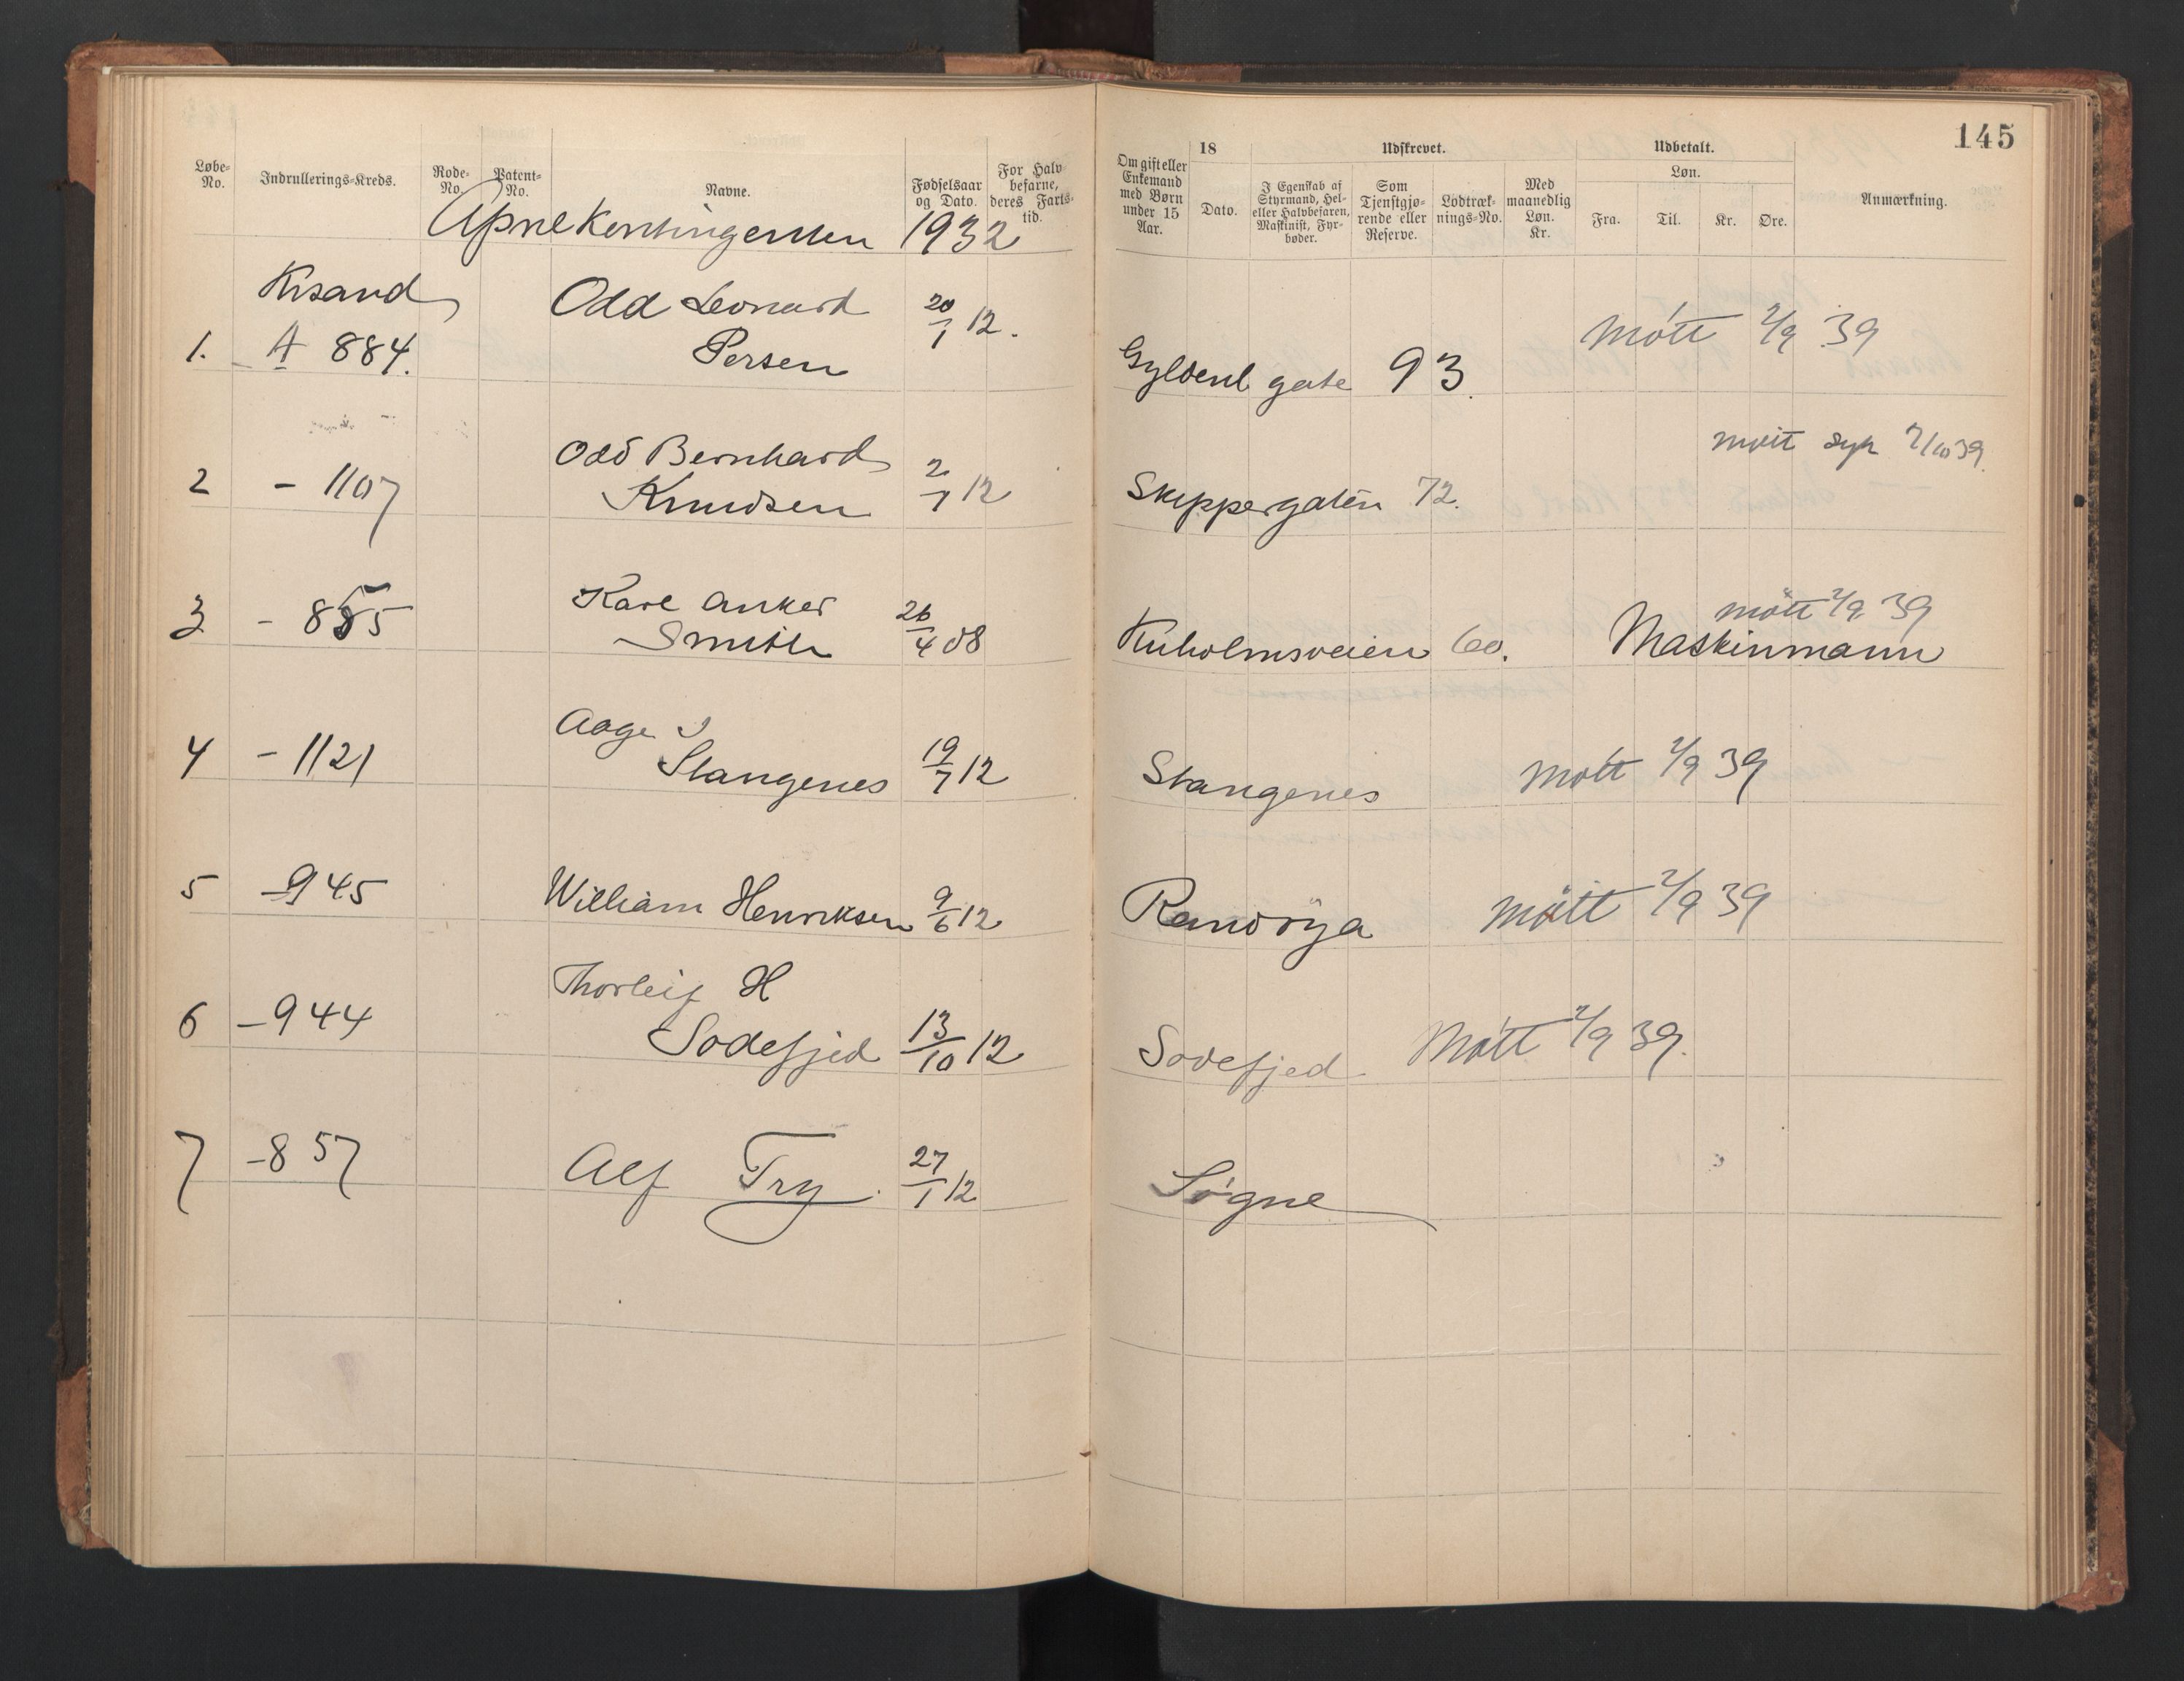 145
Løbe-No. Indrullerings-Kreds. Rode-No. Patent-No. Navne. Fødselsaar og Dato. For Halvbefarne, deres Fartstid.
Om gift eller Enkemand med Børn under 15 Aar. 18 Dato. Udskrevet. I Egenskab af Styrmand, Hel- eller Halvbefaren, Maskinist, Fyrbøder. Som Tjenstgjørende eller Reserve. Lodtræknings-No. Med maanedlig Løn. Kr. Udbetalt. Løn. Fra. Til. Kr. Øre. Anmærkning.
1932
Krsand Odd Leonard 20/1 12.
1. A 884. Persen Gyldenl gate 93. Møtt 2/9 39
Odd Bernhard møtt syk 2/10 39.
2 - 1107 Knudsen 2/1 12 Skippergaten 72.
Karl Anker møtt 2/9 39
3 - 885 Smith 26/4 08 Kuholmsveien 60. Maskinmann
Aage
4 - 1121 Stangenes 19/7 12 Stangenes Møtt 2/9 39
5 - 945 William Henriksen 9/6 12 Randøya Møtt 2/9 39
Thorleif H
6 - 944 Sodefjed 13/10 12 Sodefjed Møtt 2/9 39.
7 - 857 Alf Try. 27/1 12 Søgne